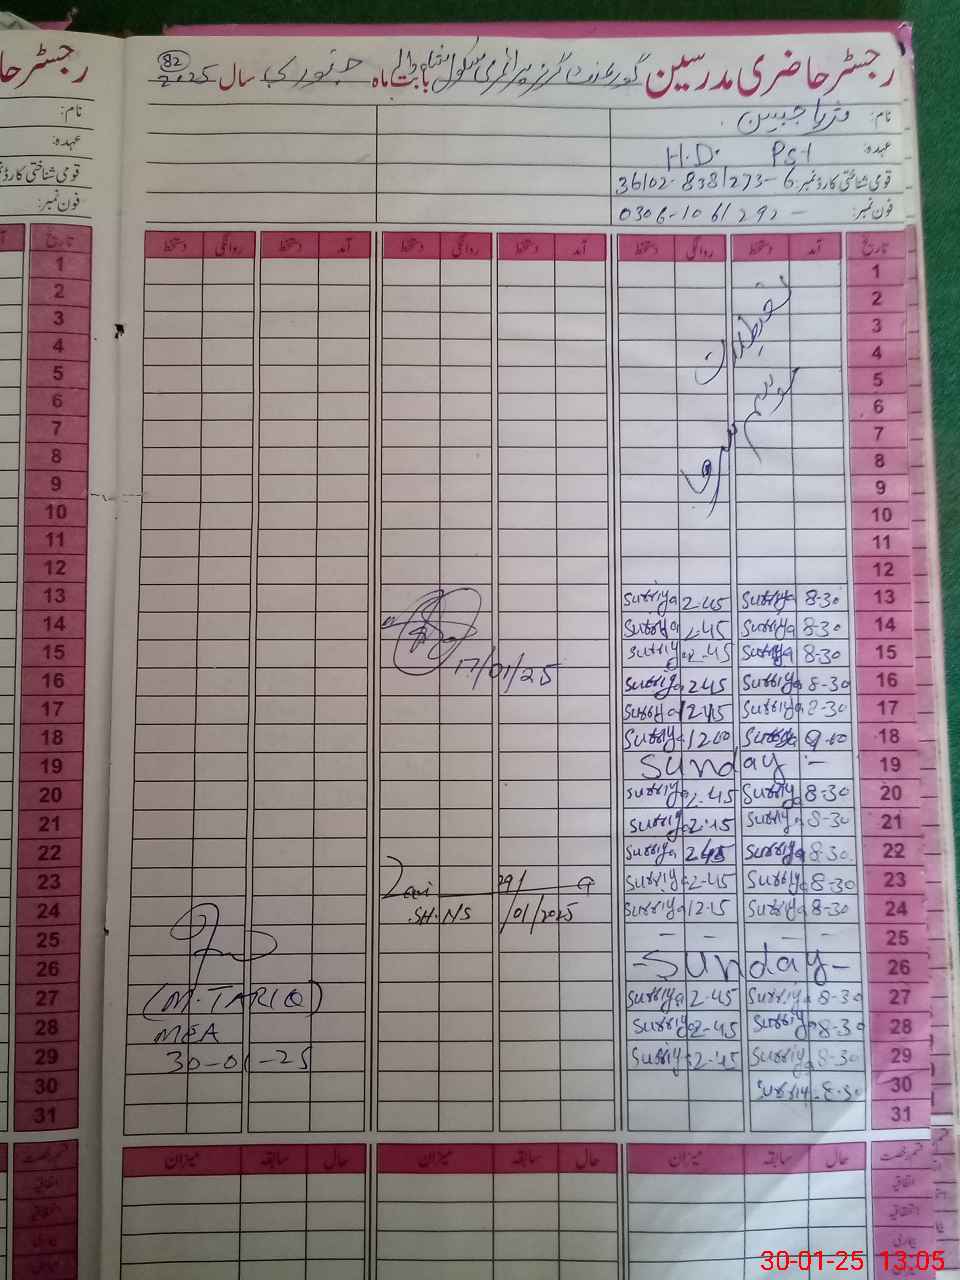 رجسٹر حاضری مدرسین گورنمنٹ گرلز پرائمری سکول بابت ماہ جنوری سال 2025
82
نام:
عہدہ: Pst H.D.
قومی شناختی کارڈ نمبر: 36102-8381273-6
فون نمبر: 0306-1061292
تاریخ آمد دستخط روانگی دستخط آمد دستخط روانگی دستخط آمد دستخط روانگی دستخط
1
2 تعطیلات
3
4
5
6 موسم
7
8 سرما
9
10
11
12
13 8-30 Surriya 2-45 Surriya
14 8-30 Surriya 2-45 Surriya
15 8-30 Surriya 2-45 Surriya
17/01/25
16 8-30 Surriya 2-45 Surriya
17 8-30 Surriya 12-15 Surriya
18 9-00 Surriya 12-00 Surriya
19 Sunday
20 8-30 Surriya 2-45 Surriya
21 8-30 Surriya 2-45 Surriya
22 8-30 Surriya 2-45 Surriya
23 8-30 Surriya 2-45 Surriya
24 8-30 Surriya 12-15 Surriya
29/01/2025
25 - - - -
26 -Sunday-
27 8-30 Surriya 2-45 Surriya
(M. TARIQ)
28 8-30 Surriya 2-45 Surriya
MEA
29 8-30 Surriya 2-45 Surriya
30-01-25
30 8-30 Surriya
31
قسم رخصت حال سابقہ میزان حال سابقہ میزان حال سابقہ میزان
اتفاقیہ
30-01-25 13:05